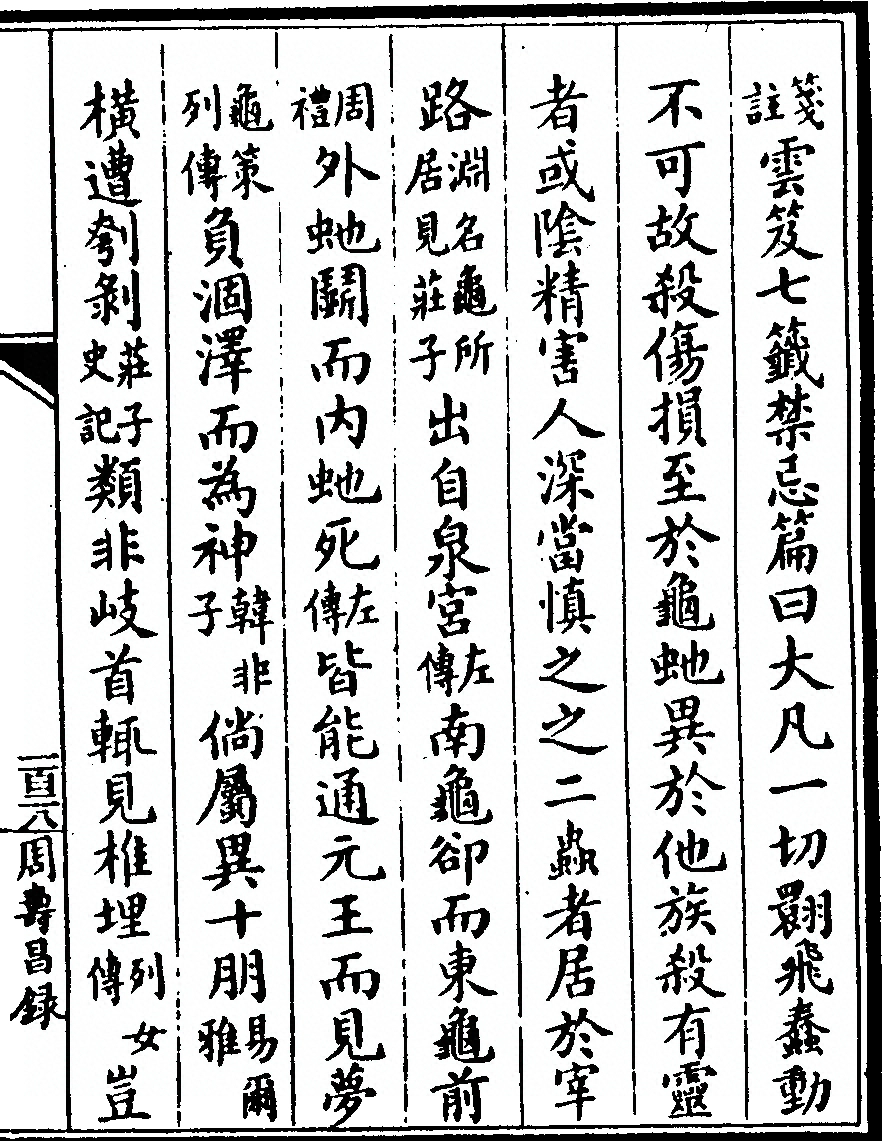 箋註雲笈七籤禁忌篇曰大凡一切翾飛蠢動
不可故殺傷損至於龜虵異於他族殺有靈
者或陰精害人深當慎之之二蟲者居於宰
路淵名龜所居見莊子出自泉宮左傳南龜卻而東龜前
周禮外虵鬭而内虵死左傳皆能通元王而見夢
龜策列傳負涸澤而為神韓非子倘屬異十朋易爾雅
橫遭刳剝莊子史記類非岐首輒見椎埋列女傳豈
一百二八周壽昌録